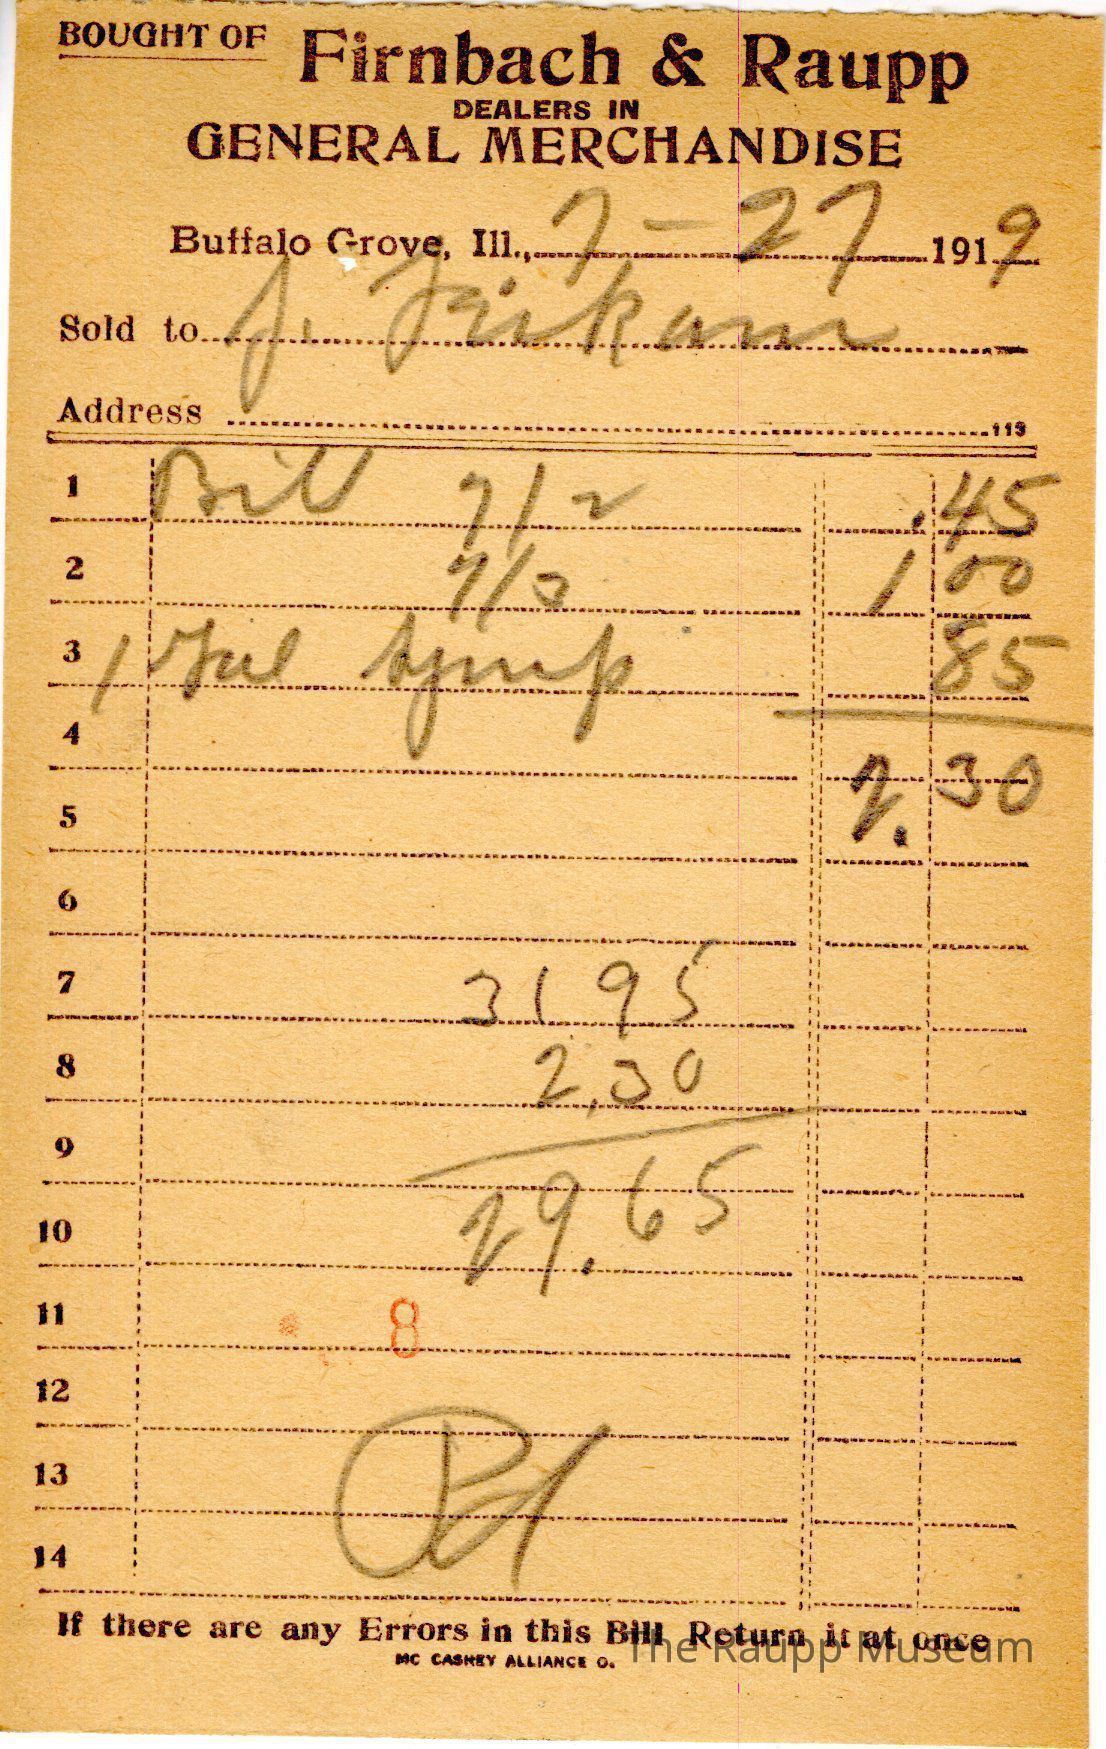 BOUGHT OF Firnbach & Raupp
DEALERS IN
GENERAL MERCHANDISE
Buffalo Grove, Ill., 7-27 1919
Sold to J.
Address
113
1 Bill 7/2 .45
2 7/3 1 00
3 1 Gal Syrup 85
4 2.30
5
6
7 31 95
8 2.30
9
10 29.65
11 8
12
13 Pd
14
If there are any Errors in this Bill Return it at once
MC CASKEY ALLIANCE O.
The Raupp Museum